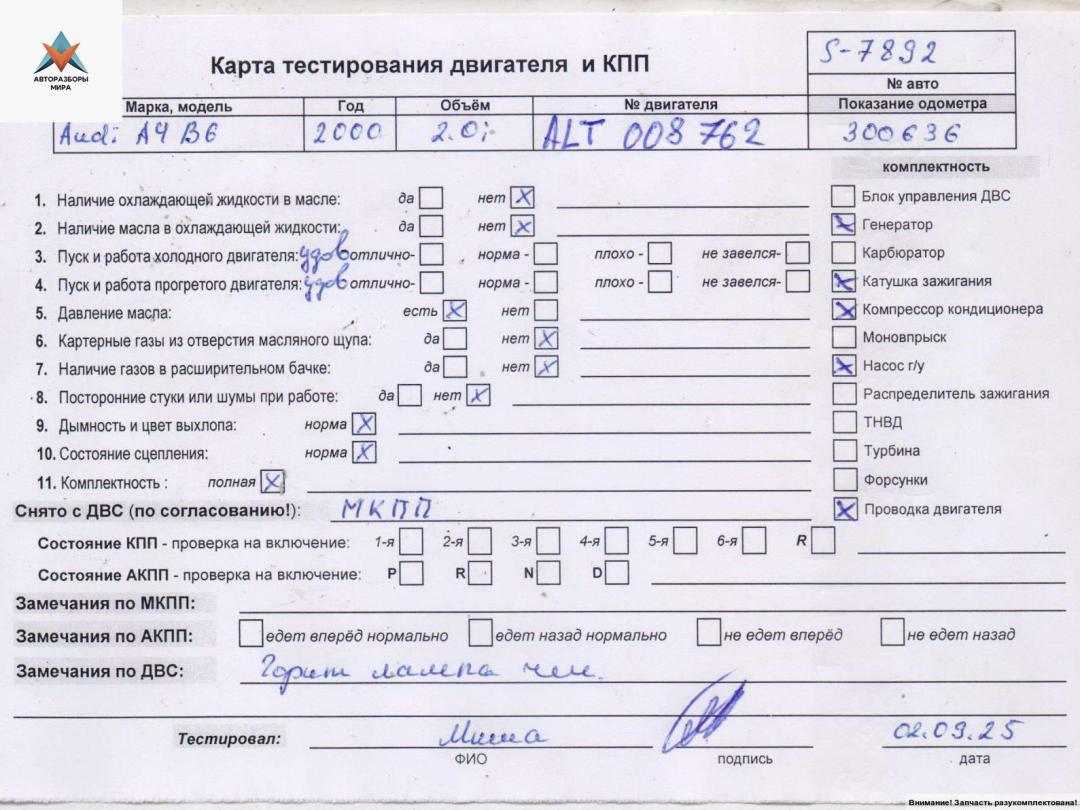 АВТОРАЗБОРЫ
МИРА
Карта тестирования двигателя и КПП
S-7892
№ авто
Марка, модель Год Объём № двигателя Показание одометра
Audi A4 B6 2000 2.0i ALT 008 762 300636
комплектность
1. Наличие охлаждающей жидкости в масле: да нет X
Блок управления ДВС
2. Наличие масла в охлаждающей жидкости: да нет X
X Генератор
3. Пуск и работа холодного двигателя: удов отлично- норма - плохо - не завелся-
Карбюратор
4. Пуск и работа прогретого двигателя: удов отлично- норма - плохо - не завелся-
X Катушка зажигания
5. Давление масла: есть X нет
X Компрессор кондиционера
6. Картерные газы из отверстия масляного щупа: да нет X
Моновпрыск
7. Наличие газов в расширительном бачке: да нет X
X Насос г/у
8. Посторонние стуки или шумы при работе: да нет X
Распределитель зажигания
9. Дымность и цвет выхлопа: норма X
ТНВД
10. Состояние сцепления: норма X
Турбина
11. Комплектность : полная X
Форсунки
Снято с ДВС (по согласованию!): МКПП
X Проводка двигателя
Состояние КПП - проверка на включение: 1-я 2-я 3-я 4-я 5-я 6-я R
Состояние АКПП - проверка на включение: P R N D
Замечания по МКПП:
Замечания по АКПП: едет вперёд нормально едет назад нормально не едет вперёд не едет назад
Замечания по ДВС: Горит лампа чек.
Тестировал: Миша 02.09.25
ФИО подпись дата
Внимание! Запчасть разукомплектована!